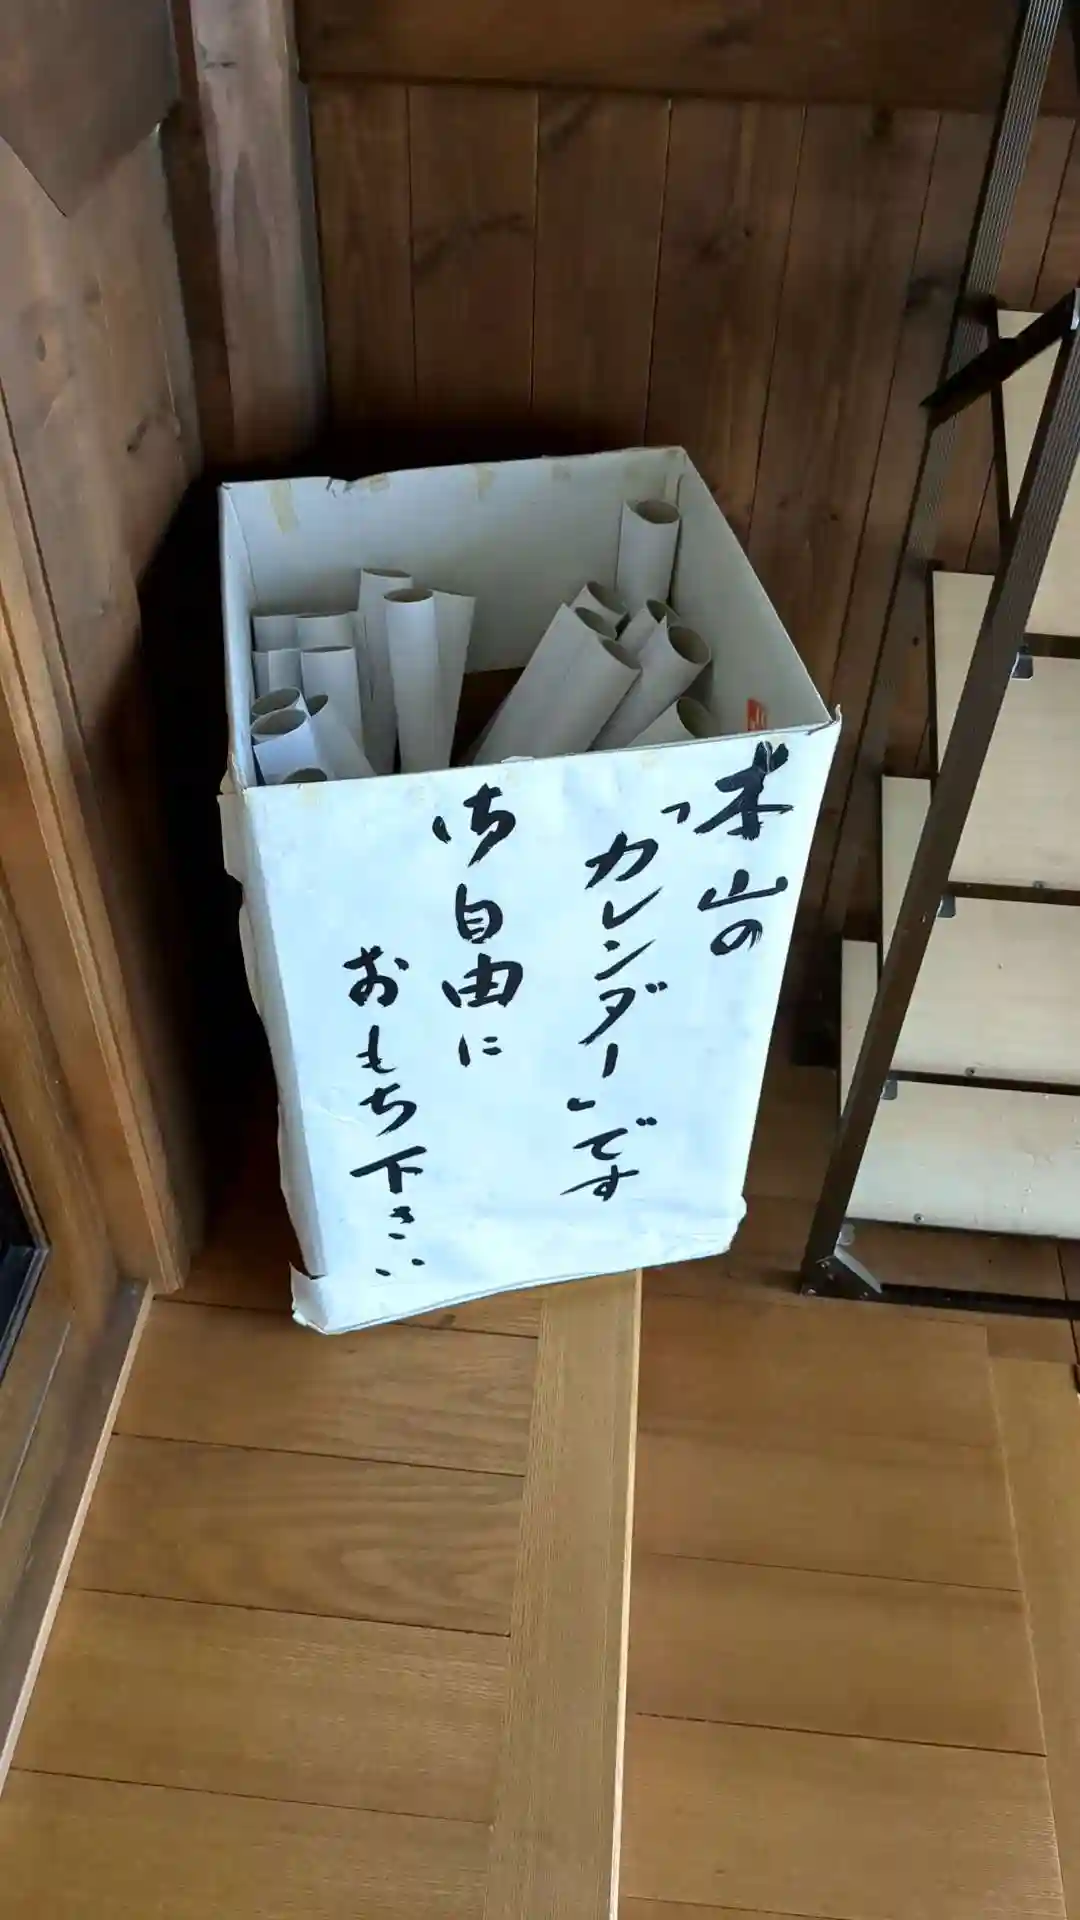 本山の
「カレンダー」です
御自由に
おもち下さい